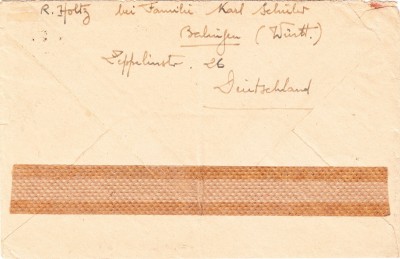 R. Holtz bei Familie Karl Schüler
Balingen (Württ.)
Zeppelinstr. 26
Deutschland